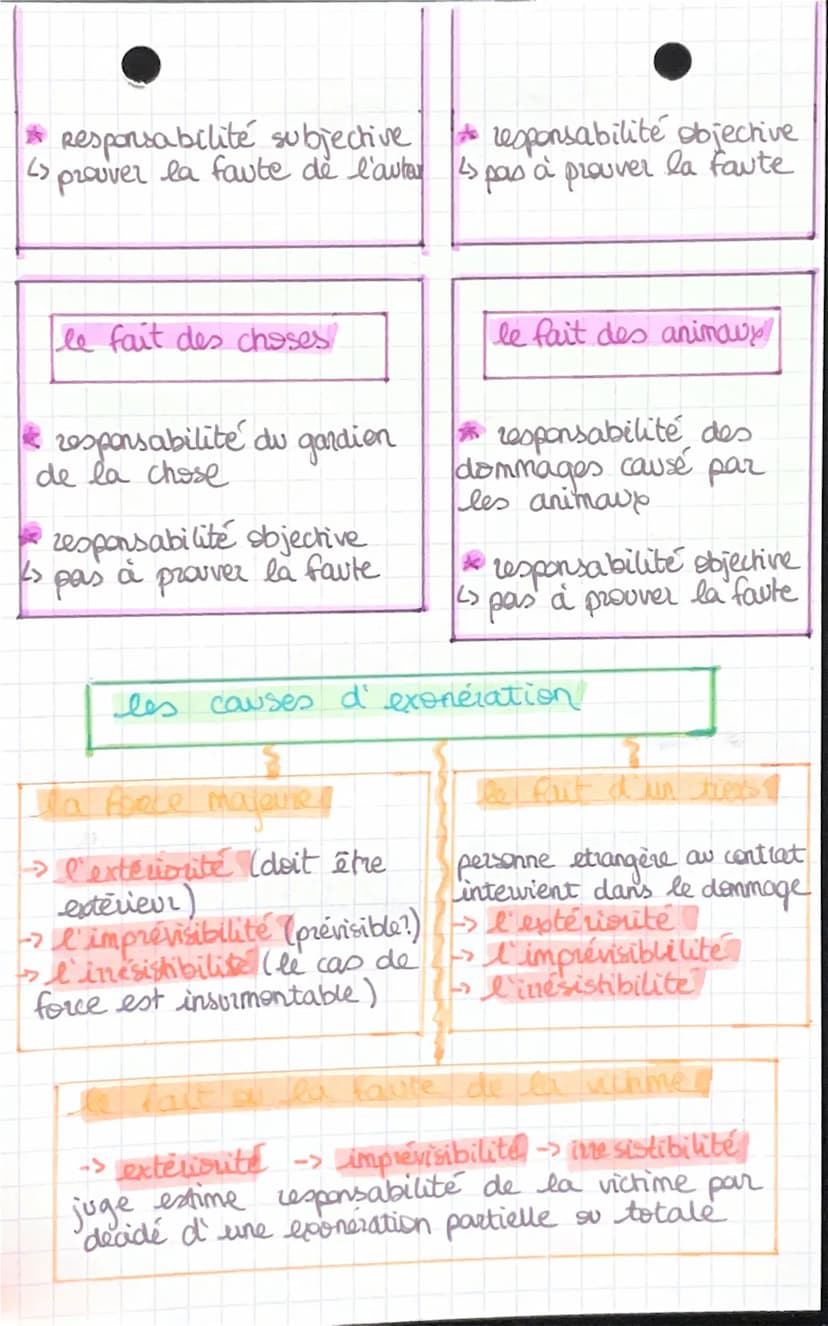 * Responsabilité subjective
↳ prouver la faute de l'auteur
* responsabilité objective
↳ pas à prouver la faute
le fait des choses
* responsabilité du gardien
de la chose
* responsabilité objective
↳ pas à prouver la faute
le fait des animaux
* responsabilité des
dommages causé par
les animaux
* responsabilité objective
↳ pas à prouver la faute
les causes d'exonération
la force majeure
-> l'extériorité (doit être
extérieur)
-> l'imprévisibilité (prévisible?)
-> l'irrésistibilité (le cas de
force est insurmontable)
le fait d'un tiers
personne etrangère au contrat
intervient dans le dommage
-> l'extériorité
-> l'imprévisiblilité
-> l'irrésistibilité
le fait ou la faute de la victime
-> extériorité -> imprévisibilité -> irresistibilité
juge estime responsabilité de la victime par
décidé d'une exonération partielle ou totale